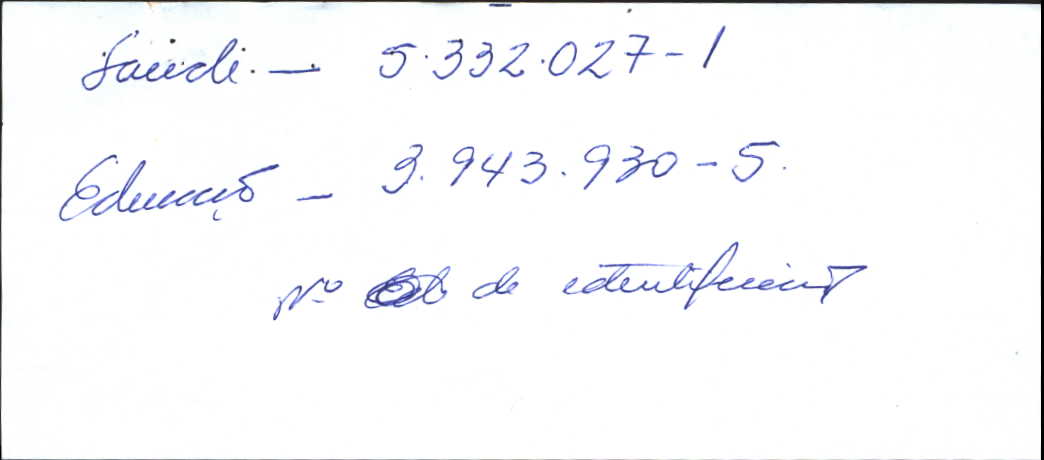 Saúde. — 5.332.027-1
Educação — 3.943.930-5.
Nº de identificação